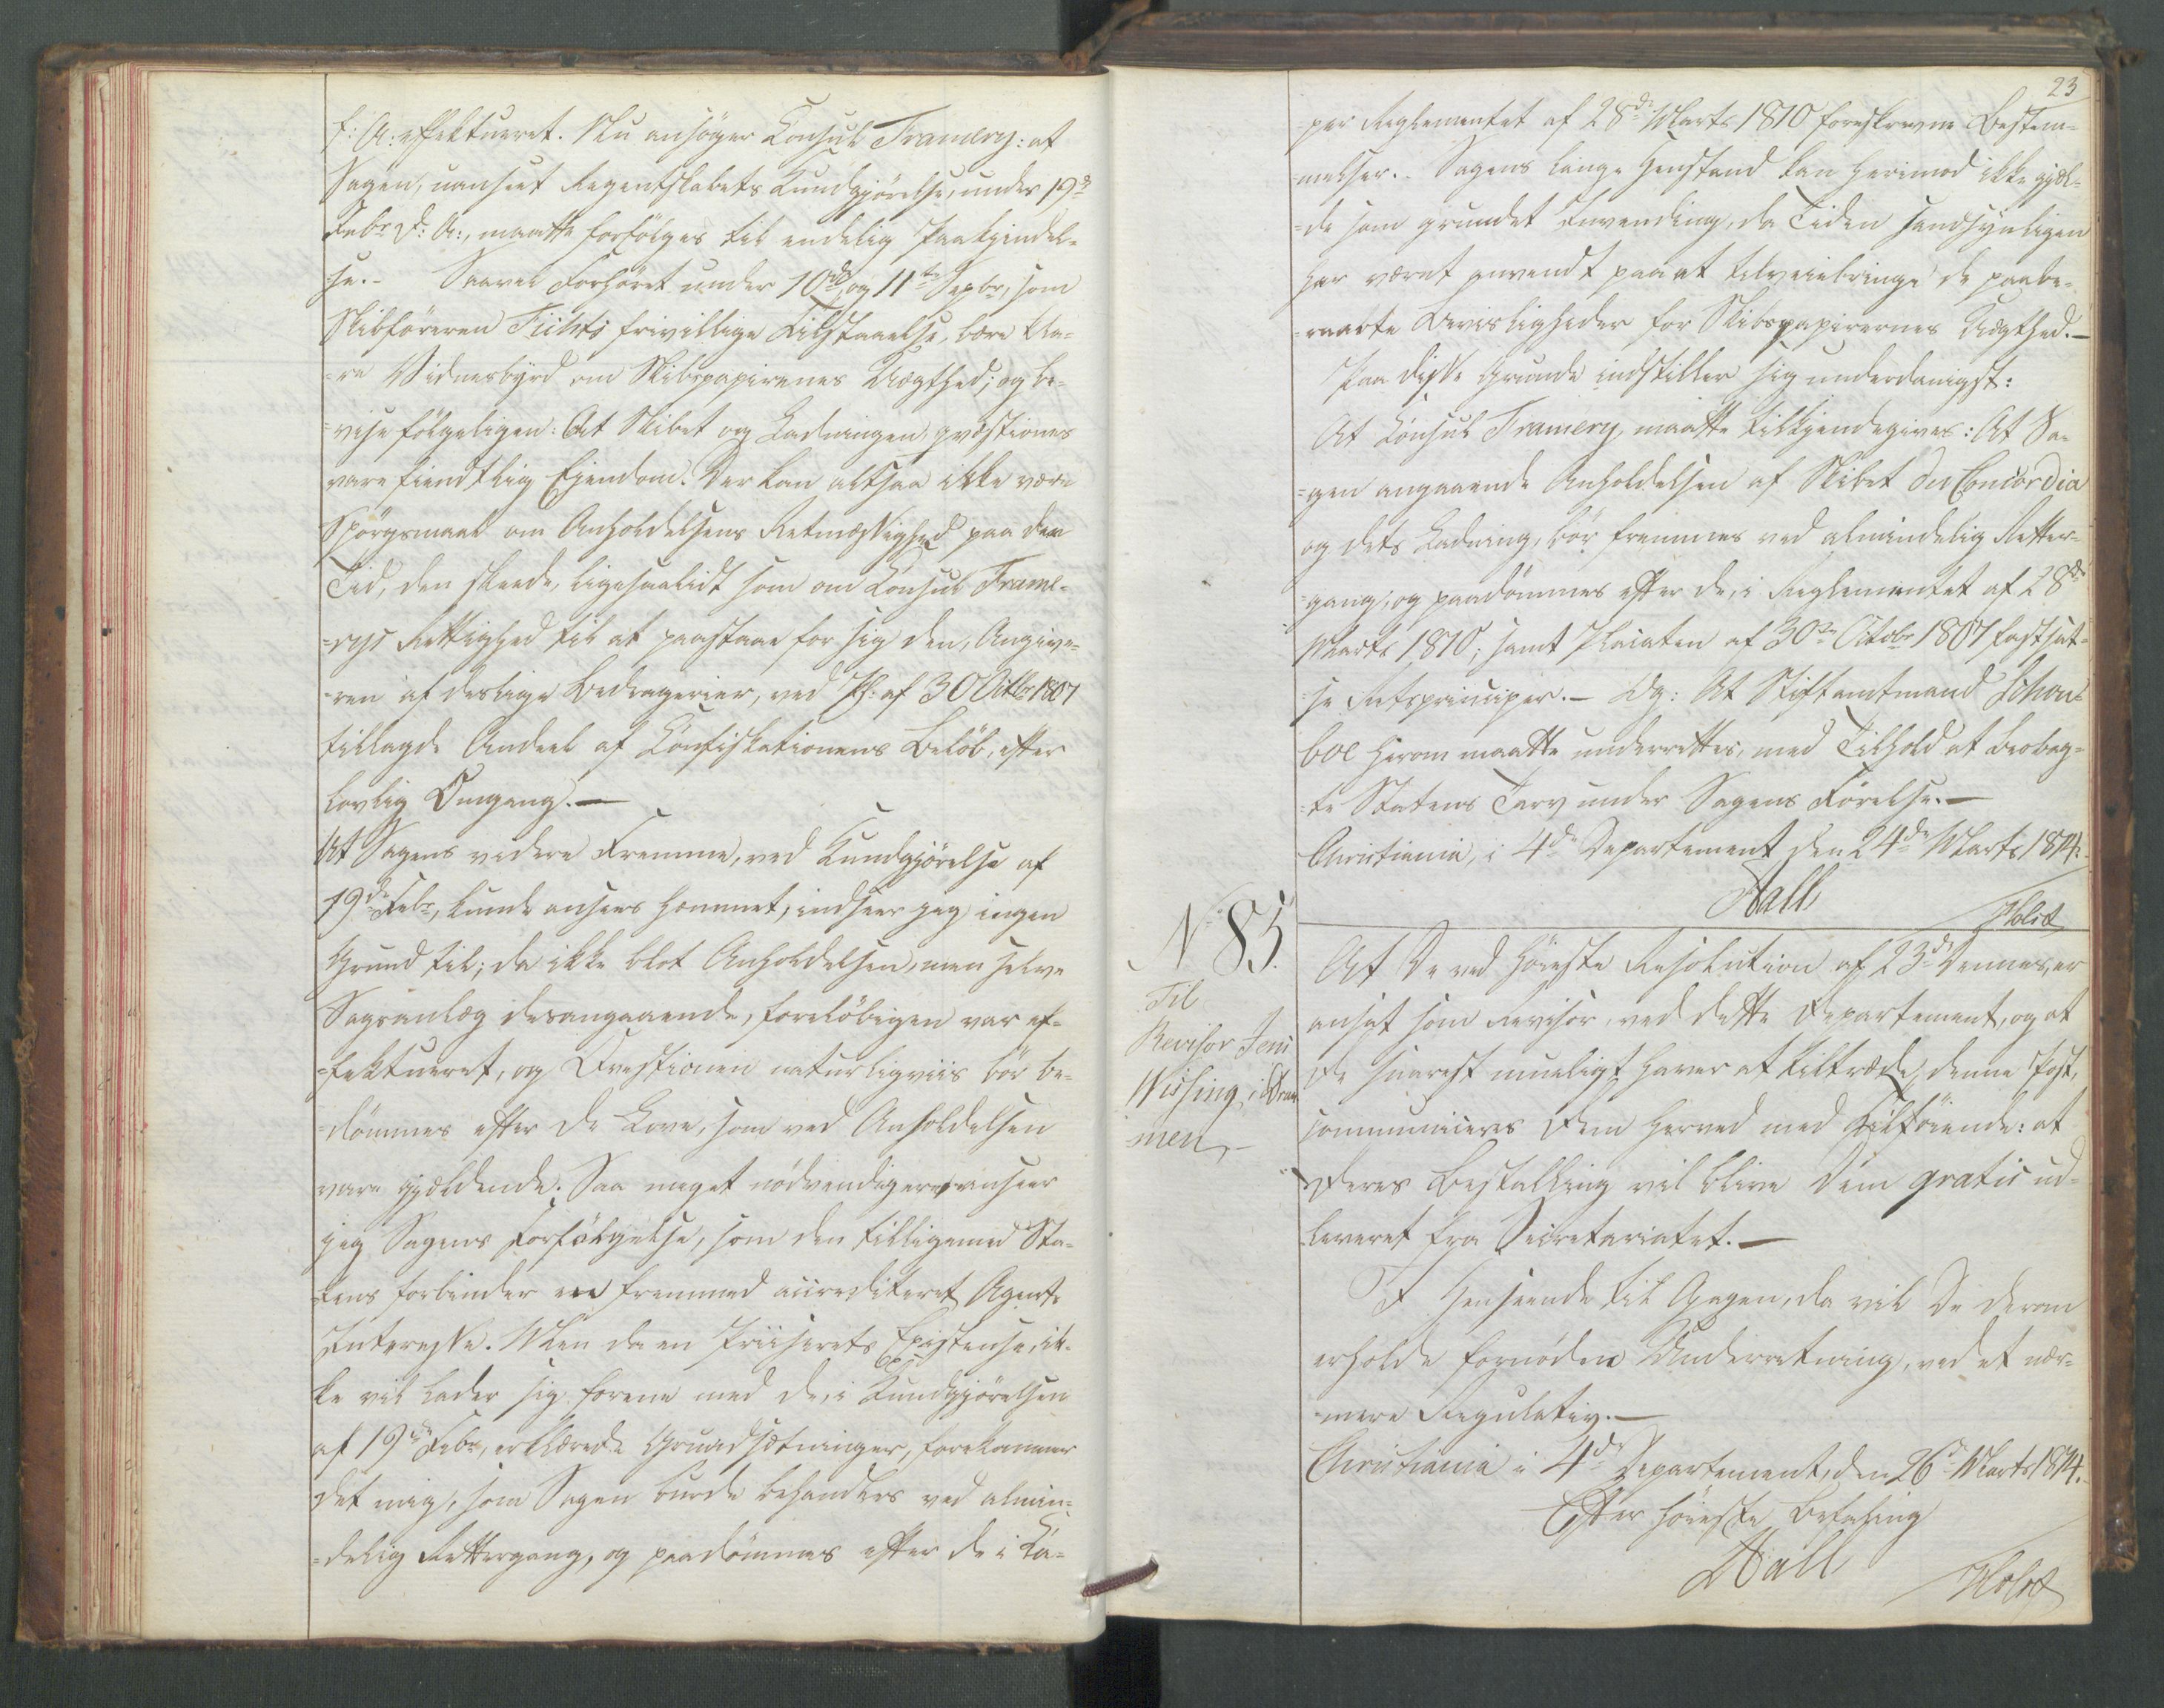 f: A: effektueret. Nu ansöger Konsul Tramery: at
Sagen, uanseet Regentskabets Kundgjörelse, under 19de
Febr d: A:, maatte forfölges til endelig Paakjendel-
se. - Saavel Forhöret under 10de og 11te Sepbr, som
Skibsföreren Tichts frivillige Tilstaaelse, bære kla-
-re Vidnesbyrd om Skibspapirenes Uægthed; og be-
=vise fölgeligen: At Skibet og Ladningen qvæstiones
vare fiendtlig Eiendom. Der kan altsaa ikke være
Spörgsmaal om Anholdelsens Retmæssighed paa den
Tid, den skeede, ligesaalidt som om Konsul Trame-
=rys Rettighed til at paastaae for sig den, Angive-
=ren af deslige Bedragerier, ved Pl: af 30 Octbr 1807
tillagde Andeel af Konfiskationens Belöb, efter
lovlig Omgang. —
At Sagens videre Fremme, ved Kundgjörelse af
19de Febr, kunde ansees hæmmet, indseer jeg ingen
Grund til; da ikke blot Anholdelsen, men selve
Sagsanlæg desangaaende, forelöbigen var ef-
=fektueret, og Qvestionen naturligviis bör be-
=dömmes efter de Love, som ved Anholdelsen
vare gjældende. Saa meget nödvendigere anseer
jeg Sagens Forfölgelse, som den tilligemed Sta-
tens forbinder en fremmed accrediteret Agents
Interesse. Men da en Priiserets Existense, ik-
ke vil lader sig forene med de, i Kundgjörelsen
af 19de Febr, erklærede Grundsætninger, forekommer
det mig, som Sagen burde behandles ved almin-
=delig Rettergang, og paadömmes efter de i Ka-
23
=per Reglementet af 28de Marts 1810 foreskrevne Bestem-
=melser. Sagens lange Henstand kan herimod ikke gjæl-
=de som grundet Indvending, da Tiden sandsynligen
har været anvendt paa at tilveiebringe de paabe-
=raabte Beviisligheder for Skibspapirernes Uægthed. —
Paa disse Grunde indstilles sig underdanigst:
At Konsul Tramery maatte tilkjendegives: At Sa-
=gen angaaende Anholdelsen af Skibet De Concordia
og dets Ladning, bör fremmes ved almindelig Retter-
=gang, og paadömmes efter de, i Reglementet af 28de
Marts 1810, samt Placaten af 30te Octobr 1807 fastsat-
=te Retsprinciper. — Og: At Stiftamtmand Schou-
boe herom maatte underrettes, med Tilhold at beobag-
=te Statens Tarv under Sagens Förelse. —
Christiania, i 4de Departement den 24de Marts 1814.
Aall
Holst
No 85.
Til
Revisor Jens
Wissing, i Dram
men
At De ved höieste Resolution af 23de Dennes, er
ansat som Revisor, ved dette Departement, og at
De snarest mueligt haver at tiltræde denne Post,
communiceres Dem herved med Tilföiende: at
Deres Bestalling vil blive Dem gratis ud-
leveret fra Secretariatet. —
I Henseende til Gagen, da vil De derom
erholde fornöden Underretning, ved et nær-
mere Regulativ. —
Christiania i 4de Departement, den 26de Marts 1814.
Efter höieste Befaling
Aall
Holst